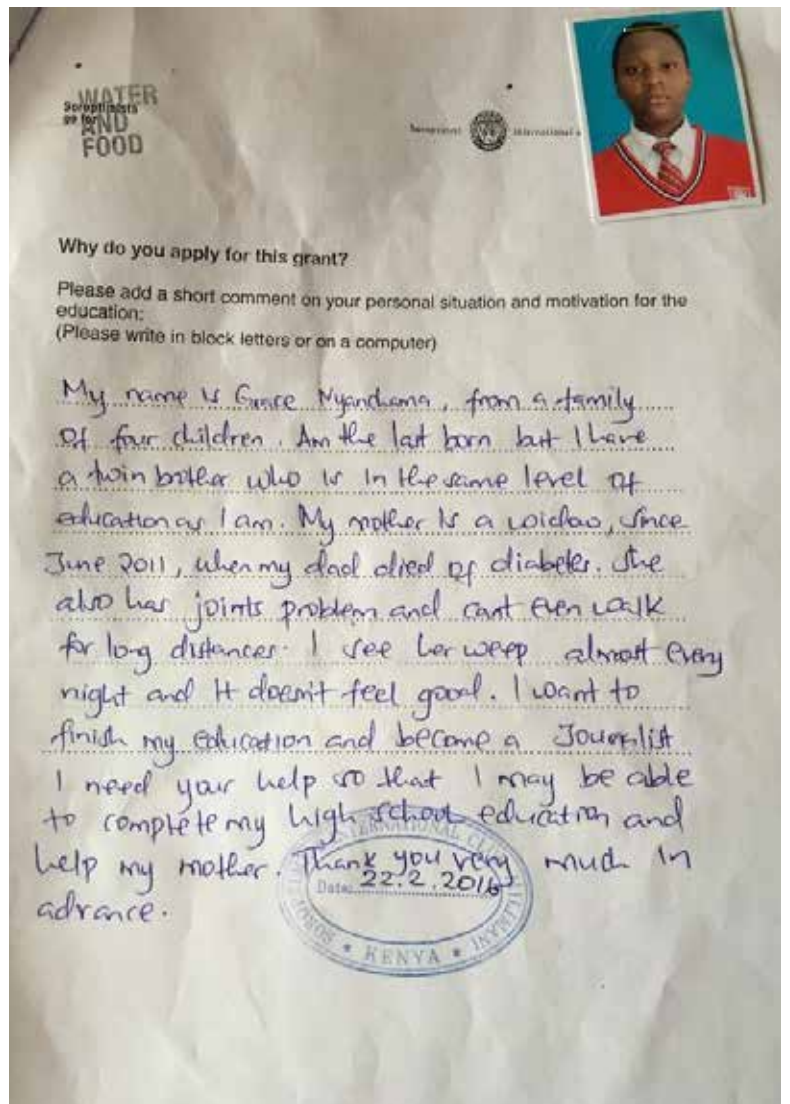 WATER
Soroptimists
go for
AND
FOOD
Soroptimist International
Why do you apply for this grant?
Please add a short comment on your personal situation and motivation for the
education:
(Please write in block letters or on a computer)
My name is Grace Nyandiama, from a family
of four children. Am the last born but I have
a twin brother who is in the same level of
education as I am. My mother is a widow, since
June 2011, when my dad died of diabetes. She
also has joints problem and cant even walk
for long distances. I see her weep almost every
night and it doesn't feel good. I want to
finish my education and become a Journalist
I need your help so that I may be able
to complete my high school education and
help my mother. Thank you very much in
advance.
INTERNATIONAL
Date: 22.2.2016
KENYA